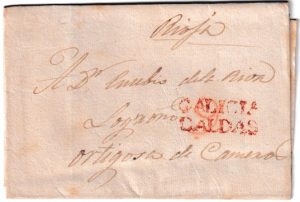 Rioja
A Dn Eusebio de la Riva
Logroño
GALICIA
CALDAS
ortigosa de Cameros